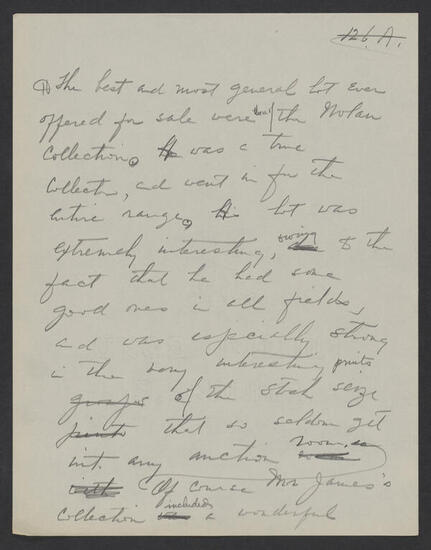 126 A.
(1) The best and most general lot ever
offered for sale were those of the Nolan
Collection. He was a true
Collector, and went in for the
entire range. His lot was
extremely interesting, owing to the
fact that he had some
good ones in all fields,
and was especially strong
in the very interesting prints
groups of the stock size
prints that so seldom get
int. any auction room.
with Of course Mrs James's
Collection included a wonderful